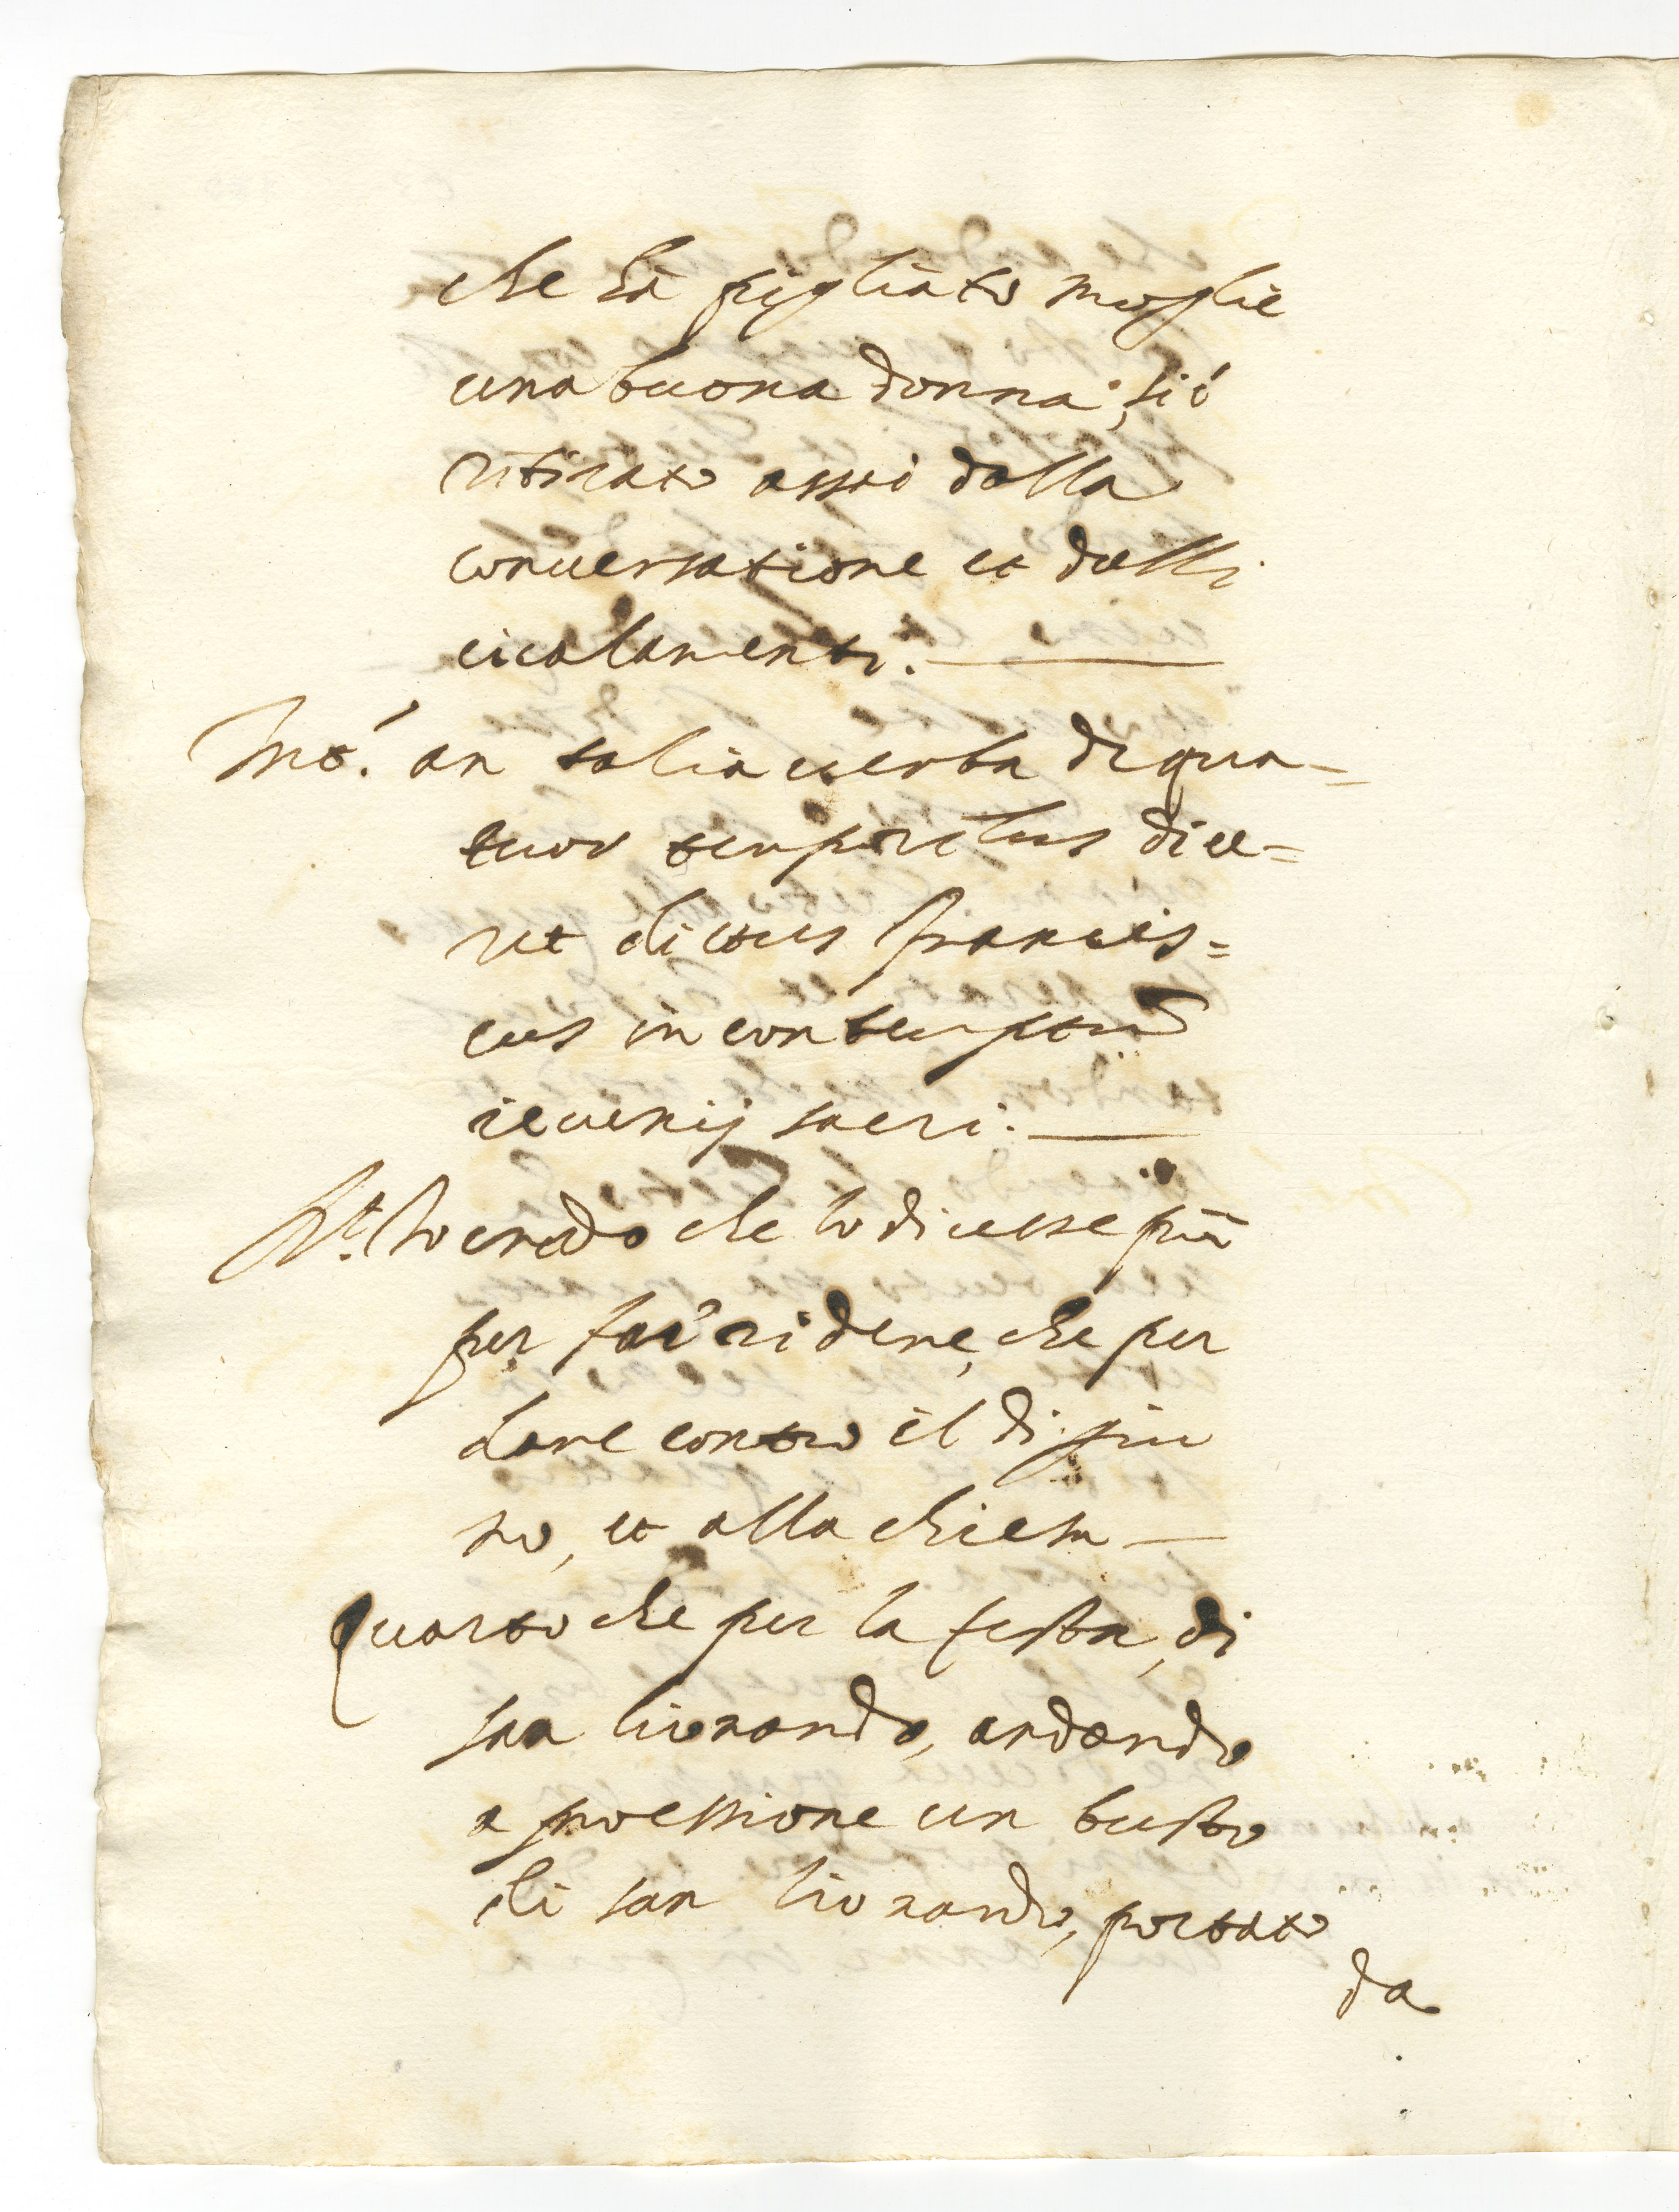 che hà pigliato moglie
una buona donna; si é
ritirato assai dalla
conversatione et dalli
cicalamenti.
Int.º an talia verba de qua=
tuor temporibus dice=
ret dictus Francis=
cus in contemptum
ieiunij sacri.
Rt. Io credo che lo dicesse più
per far ridere, che per
dare contro il digiu
no, et alla chiesa
Quarto che per la festa, di
san lionardo, andando
a processione un busto
di san lionardo, portato
da